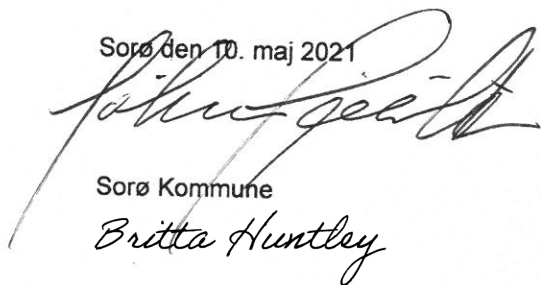 Sorø den 10. maj 2021
Sorø Kommune
Britta Huntley